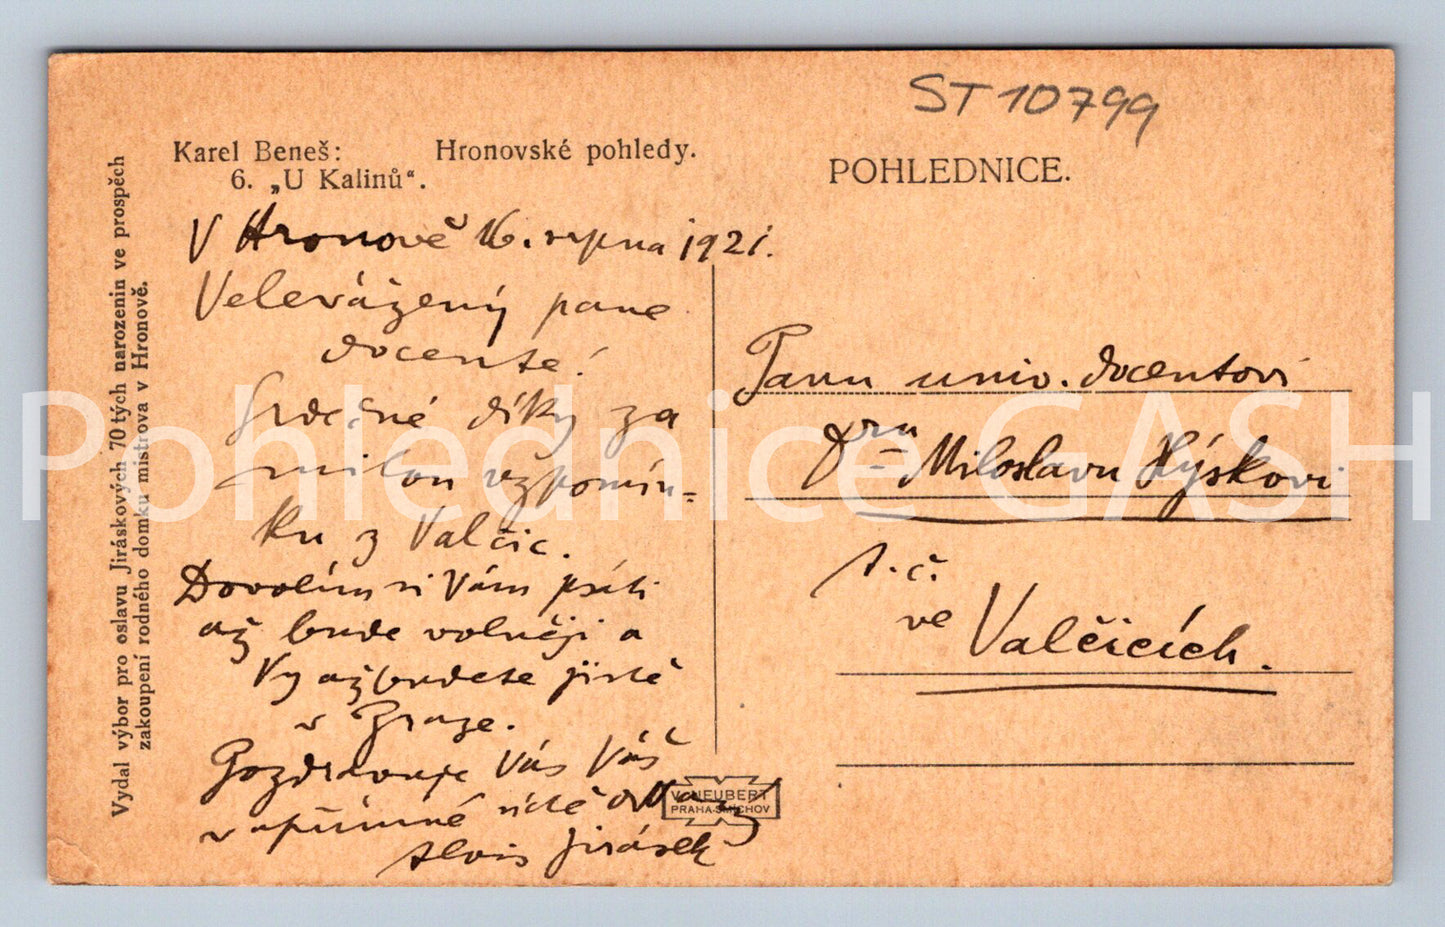 ST 10799
Karel Beneš: Hronovské pohledy.
6. „U Kalinů“.
POHLEDNICE.
V Hronově 16. srpna 1921.
Velevážený pane
docente!
Srdečné díky za
milou vzpomín=
ku z Valčic.
Dovolím si Vám psáti
až bude volněji a
Vy až budete jistě
v Praze.
Pozdravuje Vás Váš
v upřímné úctě oddaný
Alois Jirásek
Panu univ. docentovi
Dru Miloslavu Hýskovi
t. č.
ve Valčicích.
Vydal výbor pro oslavu Jiráskových 70tých narozenin ve prospěch
zakoupení rodného domku mistrova v Hronově.
V. NEUBERT
PRAHA-SMÍCHOV
Pohlednice GASH